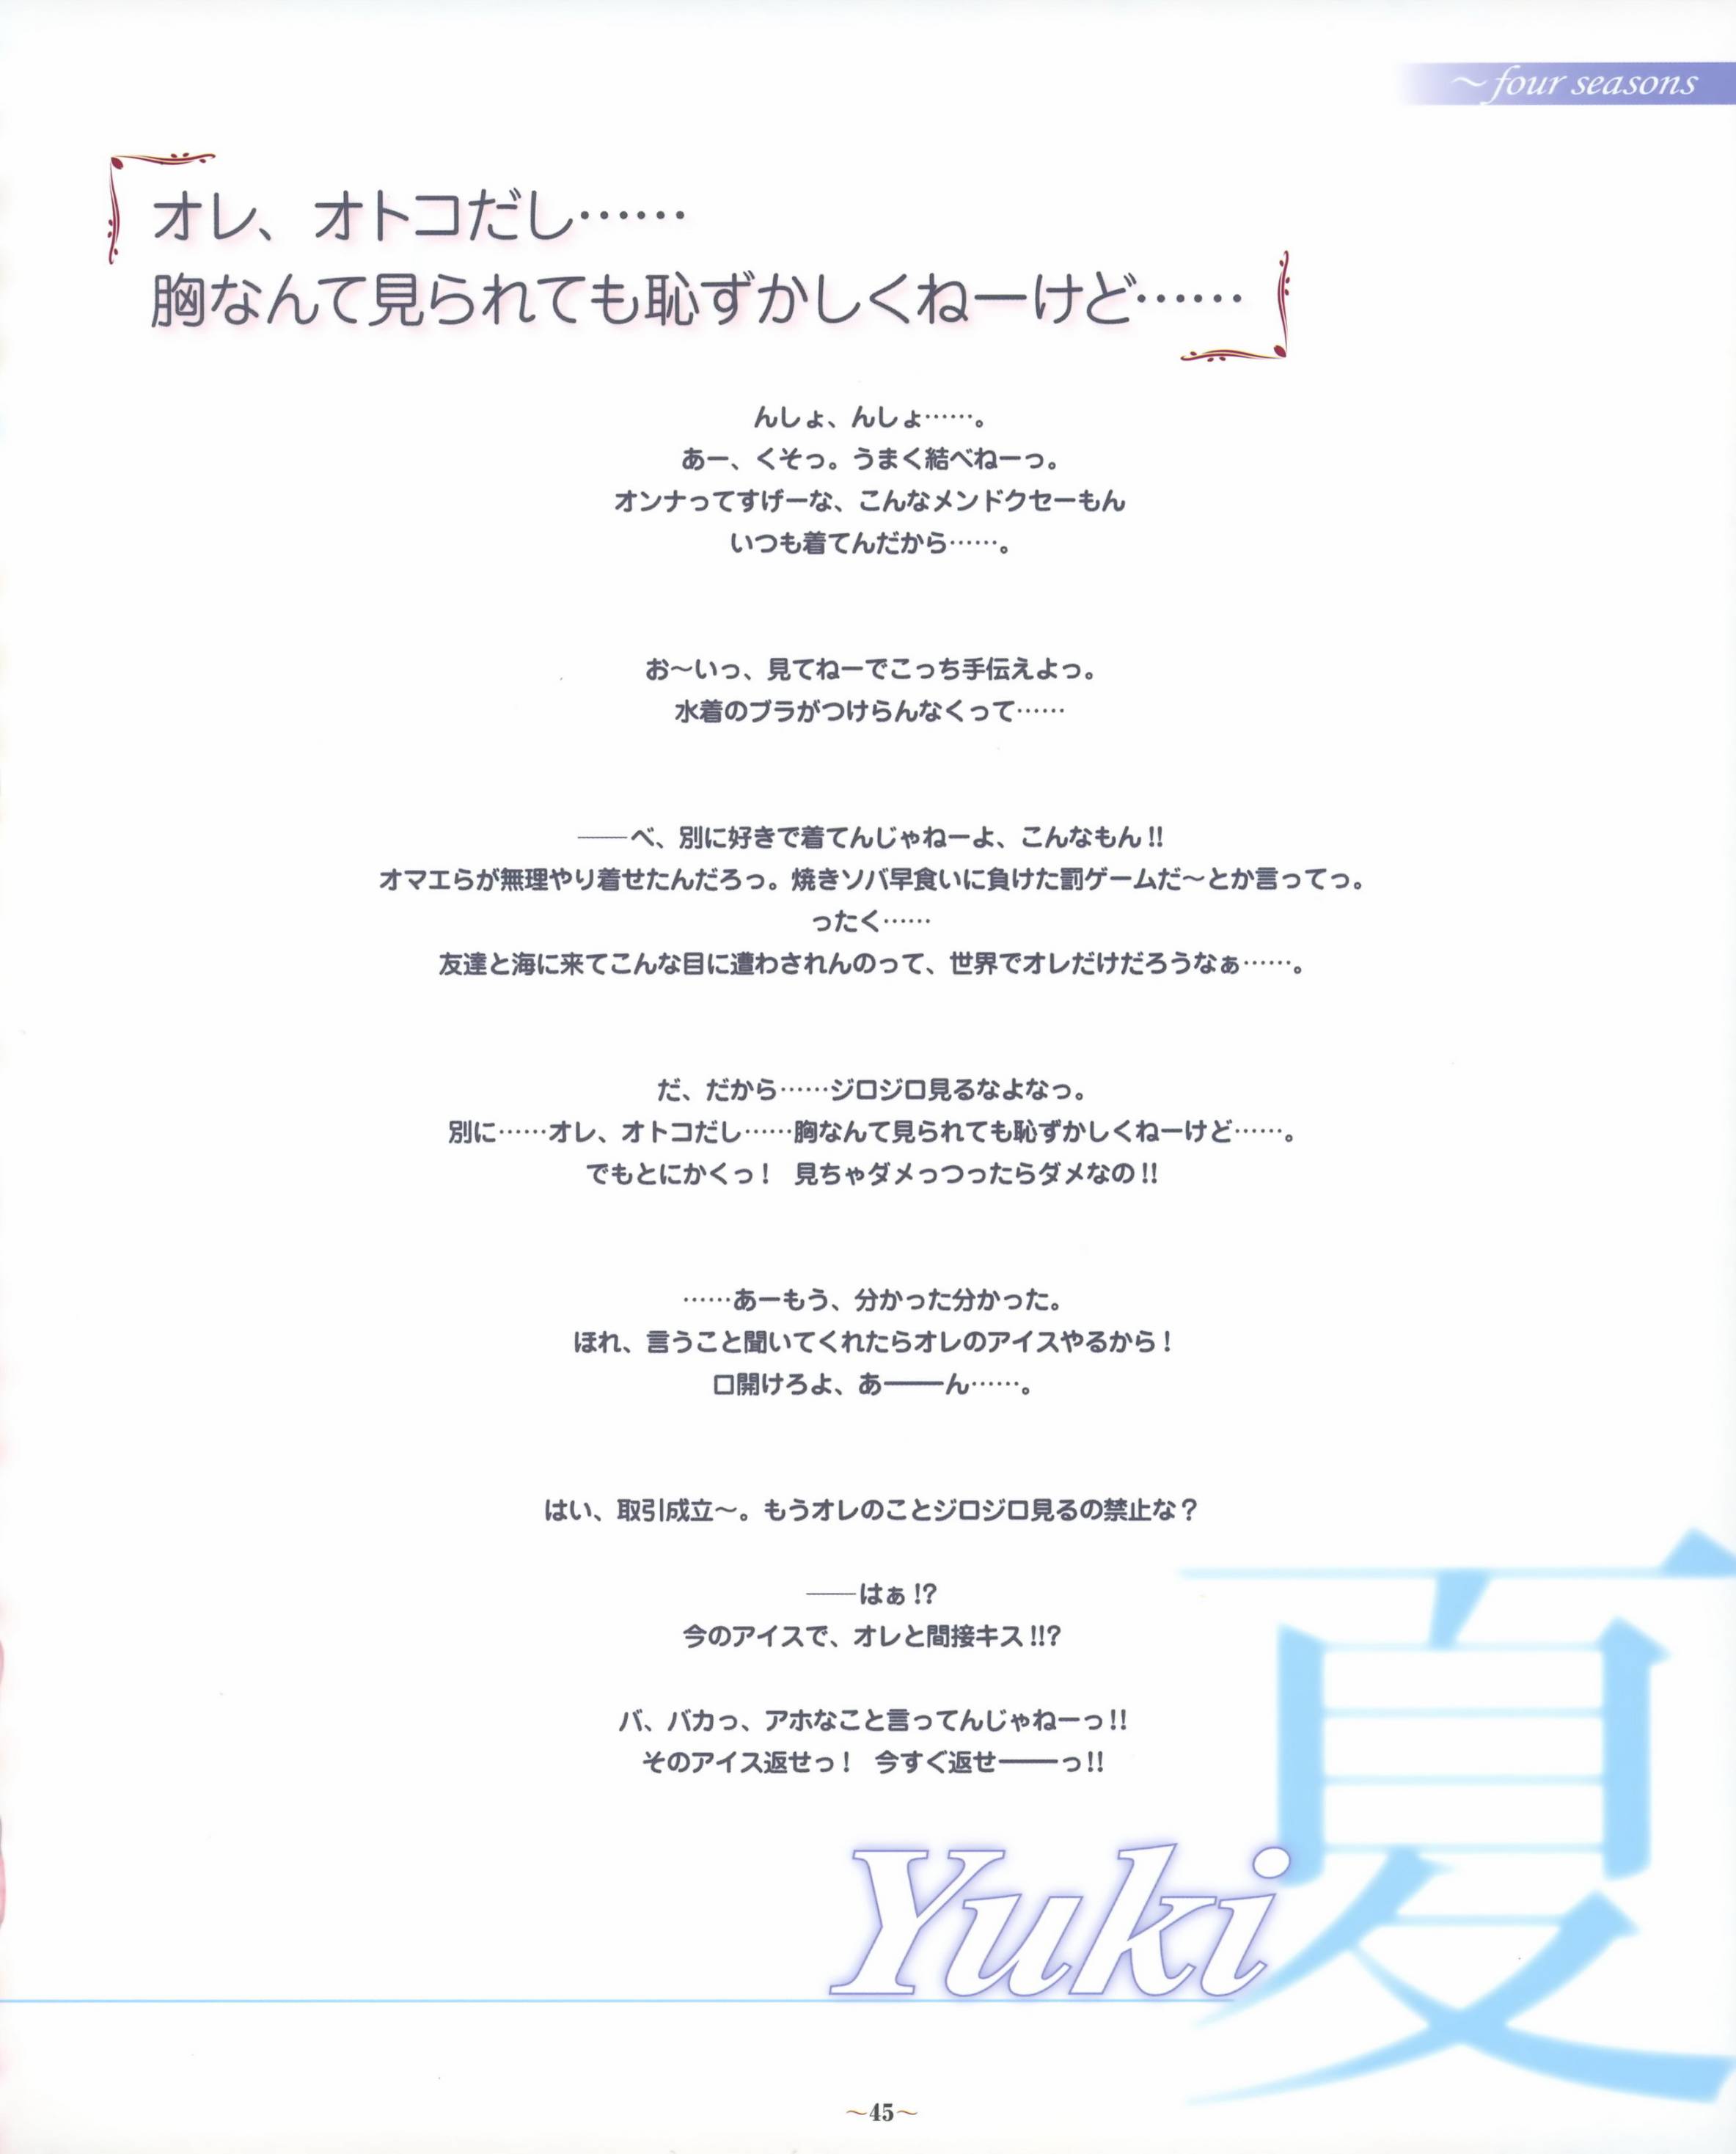 ～four seasons
オレ、オトコだし……
胸なんて見られても恥ずかしくねーけど……
んしょ、んしょ……。
あー、くそっ。うまく結べねーっ。
オンナってすげーな、こんなメンドクセーもん
いつも着てんだから……。
お～いっ、見てねーでこっち手伝えよっ。
水着のブラがつけらんなくって……
――べ、別に好きで着てんじゃねーよ、こんなもん!!
オマエらが無理やり着せたんだろっ。焼きソバ早食いに負けた罰ゲームだ～とか言ってっ。
ったく……
友達と海に来てこんな目に遭わされんのって、世界でオレだけだろうなぁ……。
だ、だから……ジロジロ見るなよなっ。
別に……オレ、オトコだし……胸なんて見られても恥ずかしくねーけど……。
でもとにかくっ！ 見ちゃダメっつったらダメなの!!
……あーもう、分かった分かった。
ほれ、言うこと聞いてくれたらオレのアイスやるから！
口開けろよ、あ――ん……。
はい、取引成立～。もうオレのことジロジロ見るの禁止な？
――はぁ!?
今のアイスで、オレと間接キス!!?
バ、バカっ、アホなこと言ってんじゃねーっ!!
そのアイス返せっ！ 今すぐ返せ――っ!!
Yuki
夏
～45～